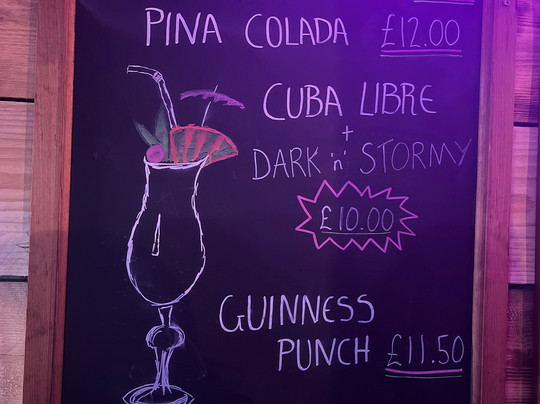 PINA COLADA £12.00
CUBA LIBRE
+
DARK 'n' STORMY
£10.00
GUINNESS
PUNCH £11.50